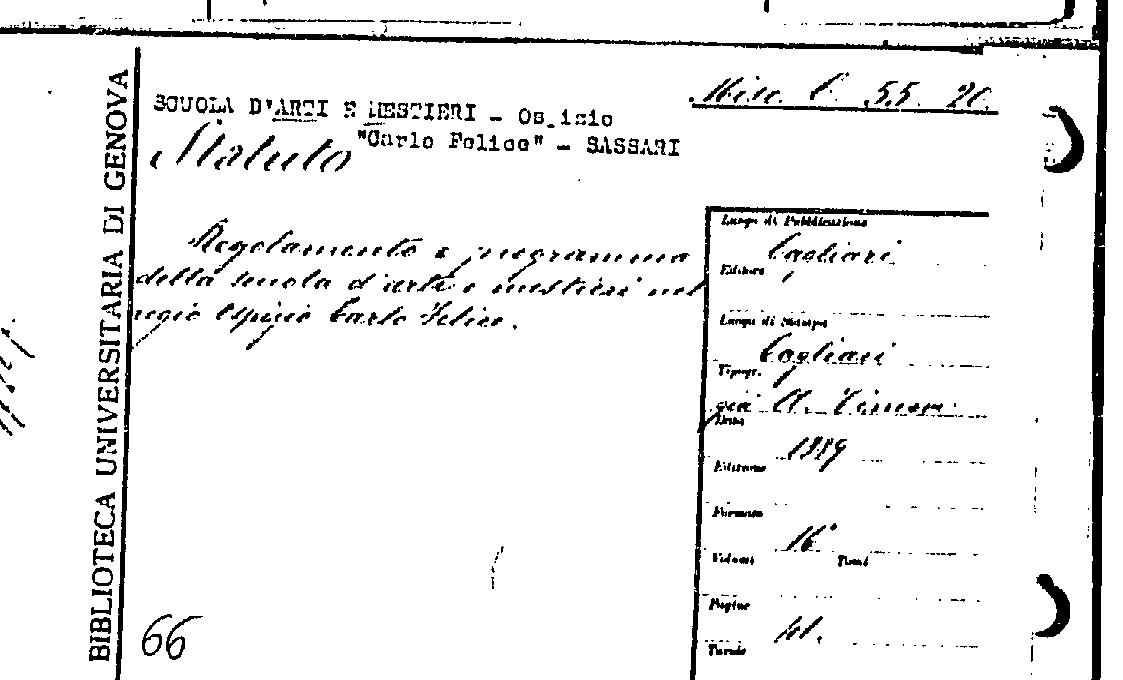 BIBLIOTECA UNIVERSITARIA DI GENOVA
Misc. C. 55. 20.
SCUOLA D'ARTI E MESTIERI - Os.izio
"Carlo Felice" - SASSARI
Statuto
Regolamento e programma
della scuola d'arti e mestieri nel
regio Ospizio Carlo Felice.
Luogo di Pubblicazione
Cagliari
Editore
Luogo di Stampa
Cagliari
Tipogr.
A. Timon
Data
1889
Edizione
Formato
16°
Volumi Tomi
Pagine
41.
Tavole
66